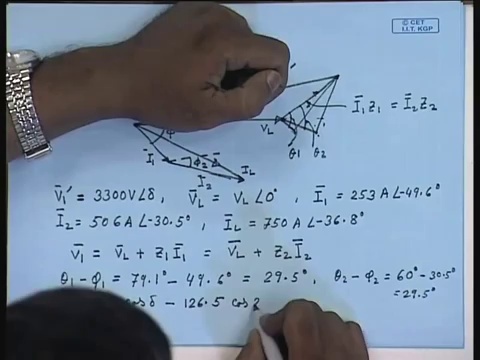 © CET
I.I.T. KGP
V_L θ₁ θ₂ Ī₁Z₁ = Ī₂Z₂
φ Ī₁ φ₂ Ī₂ I_L
V̄₁' = 3300V∠δ , V̄_L = V_L∠0° , Ī₁ = 253 A∠-49.6°
Ī₂ = 506 A∠-30.5° , Ī_L = 750 A∠-36.8°
V̄₁ = V̄_L + Z₁Ī₁ = V̄_L + Z₂Ī₂
θ₁-φ₁ = 79.1° - 49.6° = 29.5° , θ₂-φ₂ = 60° - 30.5°
= 29.5°
cosδ - 126.5 cos 2